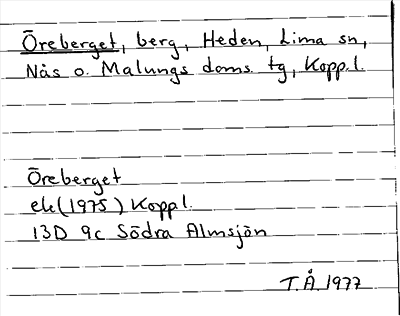 Öreberget, berg, Heden, Lima sn,
Nås o. Malungs doms. tg, Kopp.l.
Öreberget
ek (1975) Kopp.l.
13D 9c Södra Almsjön
T.Å. 1977